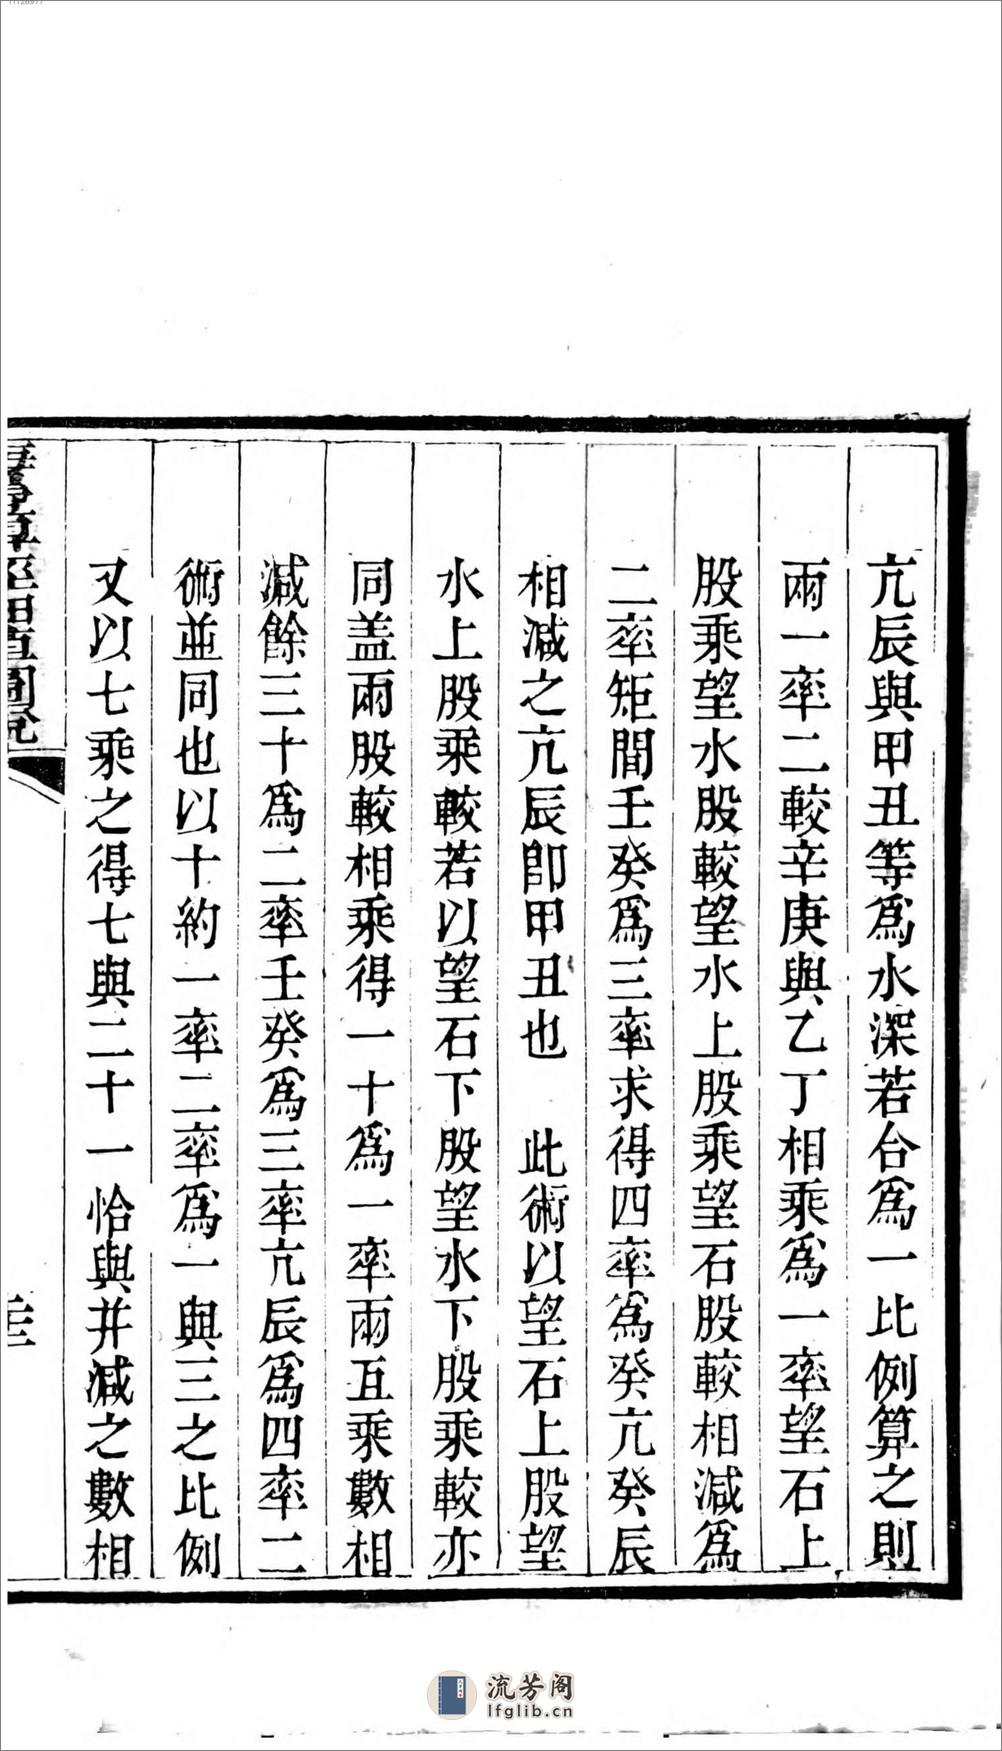 亢辰與甲丑等爲水深若合爲一比例算之則
兩一率二較辛庚與乙丁相乘爲一率望石上
股乘望水股較望水上股乘望石股較相減爲
二率矩間壬癸爲三率求得四率爲癸亢癸辰
相減之亢辰卽甲丑也　此術以望石上股望
水上股乘較若以望石下股望水下股乘較亦
同盖兩股較相乘得一十爲一率兩互乘數相
減餘三十爲二率壬癸爲三率亢辰爲四率二
術並同也以十約一率二率爲一與三之比例
又以七乘之得七與二十一恰與并減之數相
流芳阁
lfglib.cn